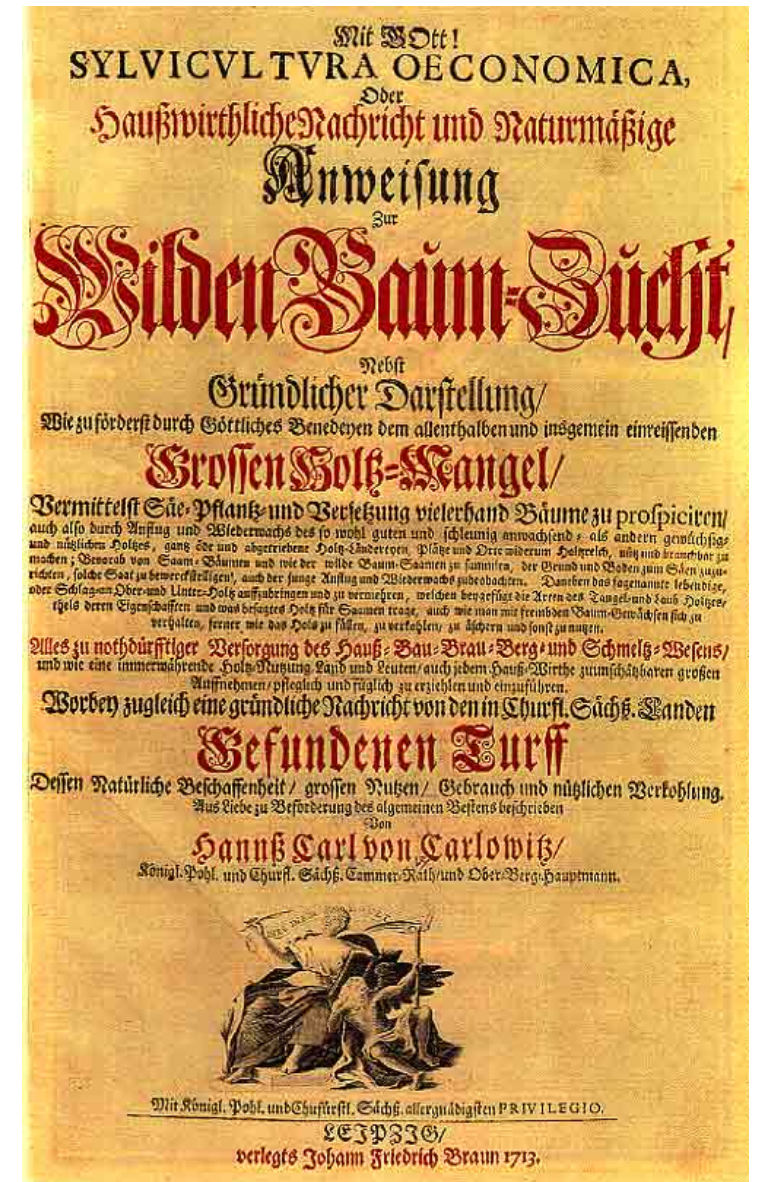 Mit GOtt!
SYLVICVLTVRA OECONOMICA,
Oder
Haußwirthliche Nachricht und Naturmäßige
Anweisung
Zur
Wilden Baum-Zucht,
Nebst
Gründlicher Darstellung/
Wie zu förderst durch Göttliches Benedeyen dem allenthalben und insgemein einreissenden
Grossen Holtz-Mangel/
Vermittelst Säe-Pflantz-und Versetzung vielerhand Bäume zu prospiciren/
auch also durch Anflug und Wiederwachs des so wohl guten und schleunig anwachsend- als andern gewüchsig-
und nützlichen Holtzes, gantz öde und abgetriebene Holtz-Ländereyen, Plätze und Orte widerum Holtzreich, nütz und brauchbar zu
machen; Bevorab von Saam-Bäumen und wie der wilde Baum-Saamen zu sammlen, der Grund und Boden zum Säen zuzu-
richten, solche Saat zu bewerckstelligen/ auch der junge Anflug und Wiederwachs zu beobachten. Daneben das sogenannte lebendige,
oder Schlag-an Ober-und Unter-Holtz auffzubringen und zu vermehren, welchen beygefügt die Arten des Tangel-und Laub-Holtzes/
theils deren Eigenschafften und was besagtes Holtz für Saamen trage, auch wie man mit frembden Baum-Gewächsen sich zu
verhalten, ferner wie das Holtz zu fällen, zu verkohlen/ zu äschern und sonst zu nutzen.
Alles zu nothdürfftiger Versorgung des Hauß-Bau-Brau-Berg-und Schmeltz-Wesens/
und wie eine immerwährende Holtz-Nutzung Land und Leuten/ auch jedem Hauß-Wirthe zu unschätzbaren großen
Auffnehmen/ pfleglich und füglich zu erziehlen und einzuführen.
Worbey zugleich eine gründliche Nachricht von den in Churfl. Sächß. Landen
Gefundenen Turff
Dessen Natürliche Beschaffenheit/ grossen Nutzen/ Gebrauch und nützlichen Verkohlung.
Aus Liebe zu Beförderung des algemeinen Bestens beschrieben
Von
Hannß Carl von Carlowitz/
Königl. Pohl. und Churfl. Sächß. Cammer-Rath/ und Ober-Berg-Hauptmann.
Mit Königl. Pohl. und Chufürstl. Sächß. allergnädigsten PRIVILEGIO.
LEIPZIG/
verlegts Johann Friedrich Braun 1713.